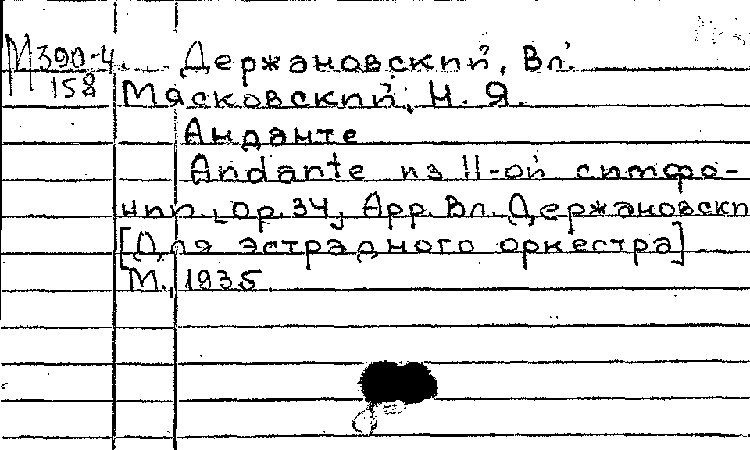 М390-4 Держановский, Вл.
158 Мясковский, Н. Я.
Анданте
Andante из 11-ой симфо-
нии, op. 34, Арр. Вл. Держановски
[Для эстрадного оркестра]
М., 1935.